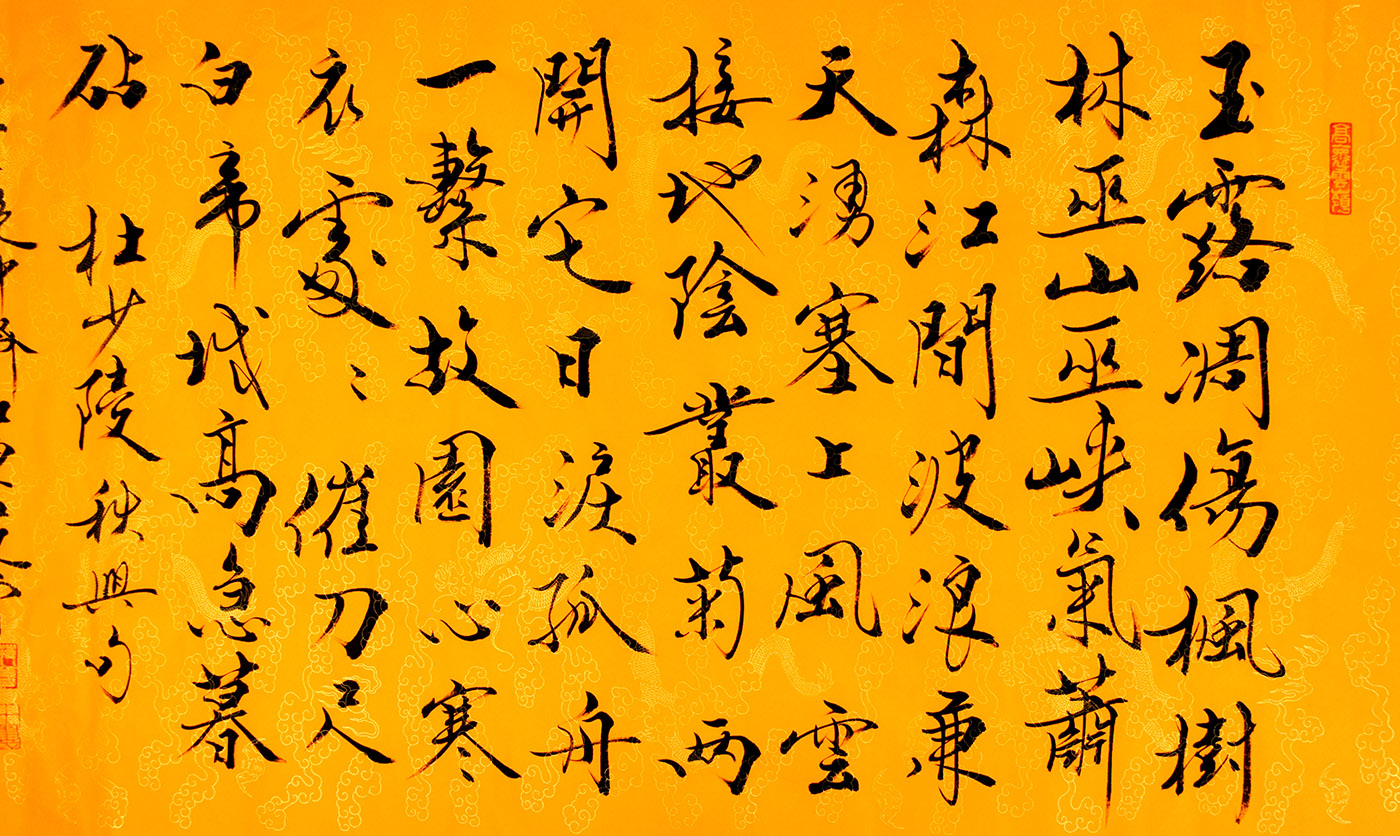 玉露凋傷楓樹
林巫山巫峽氣蕭
森江間波浪兼
天湧塞上風雲
接地陰叢菊兩
開它日淚孤舟
一繫故園心寒
衣處〻催刀尺
白帝城高急暮
砧 杜少陵秋興句